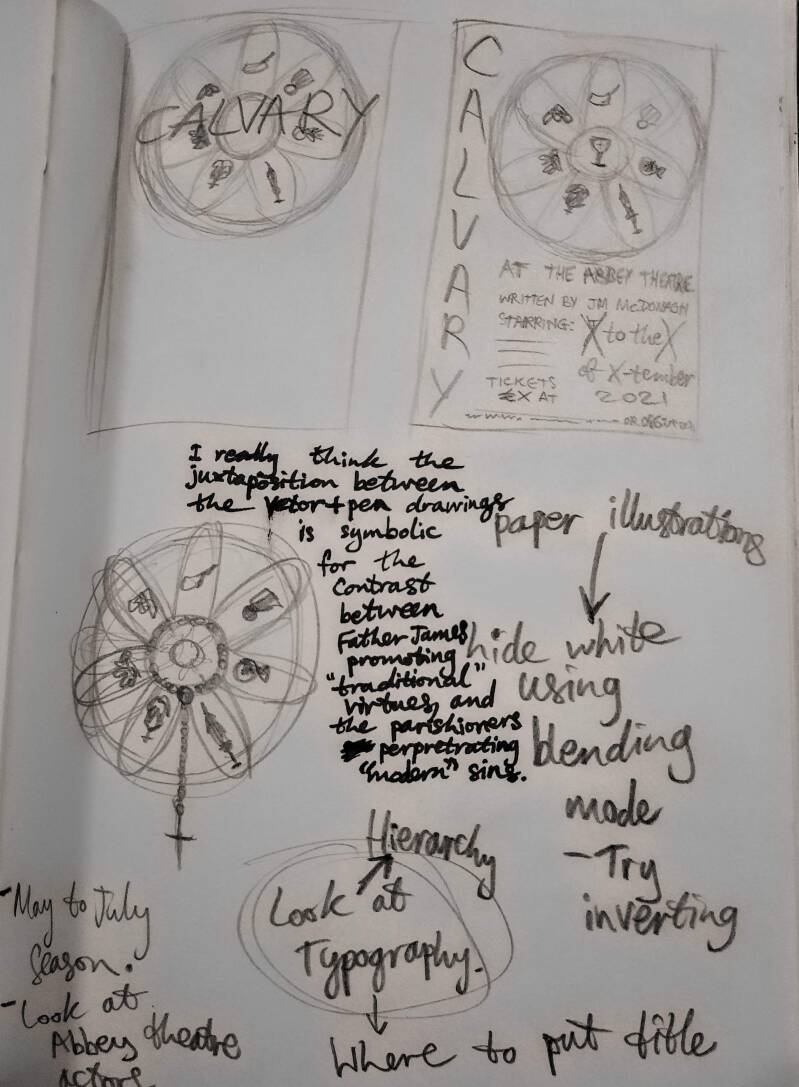 CALVARY
CALVARY
AT THE ABBEY THEATRE
WRITTEN BY JM McDONAGH
STARRING:
X to the X
of X-tember
2021
TICKETS
€X AT
I really think the
juxtaposition between
the vector + pen drawings
is symbolic
for the
contrast
between
Father James
promoting
"traditional"
virtues, and
the parishioners
perpretrating
"modern" sins.
paper illustrations
hide white
using
blending
mode
- Try
inverting
Hierarchy
Look at
Typography.
Where to put title
- May to July
Season.
- Look at
Abbey theatre
actors